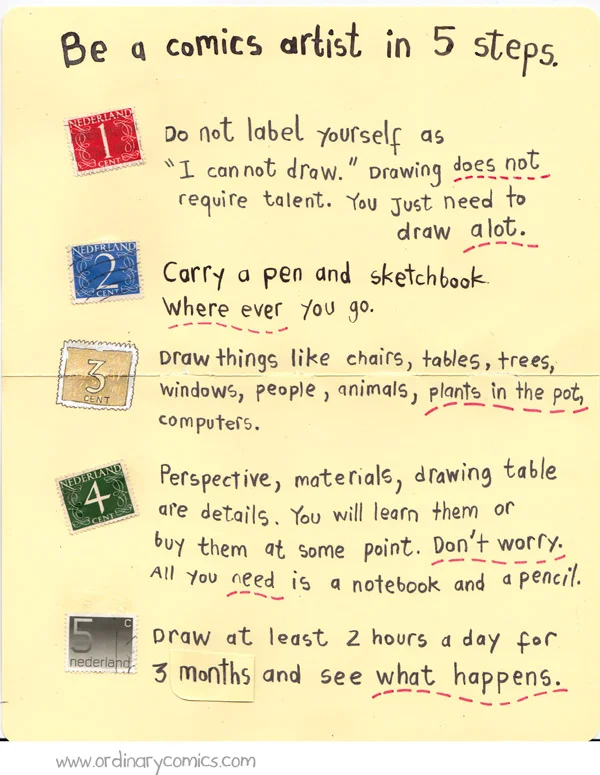 Be a comics artist in 5 steps.
NEDERLAND
1
CENT
Do not label yourself as
"I cannot draw." Drawing does not
require talent. You just need to
draw alot.
NEDERLAND
2
CENT
Carry a pen and sketchbook
where ever you go.
3
CENT
Draw things like chairs, tables, trees,
windows, people, animals, plants in the pot,
computers.
NEDERLAND
4
CENT
Perspective, materials, drawing table
are details. You will learn them or
buy them at some point. Don't worry.
All you need is a notebook and a pencil.
5 c
nederland
Draw at least 2 hours a day for
3 months and see what happens.
www.ordinarycomics.com